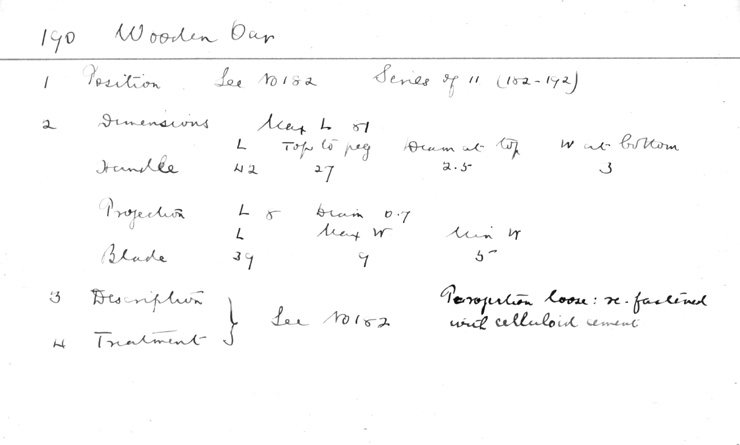 190 Wooden Oar
1 Position See No 182 Series of 11 (182-192)
2 Dimensions Max L 81
L Top to peg Diam at top W at bottom
Handle 42 27 2.5 3
Projection L 8 Diam 0.7
L Max W Min W
Blade 39 9 5
3 Description } See No 182 Projection loose: re-fastened
4 Treatment with celluloid cement